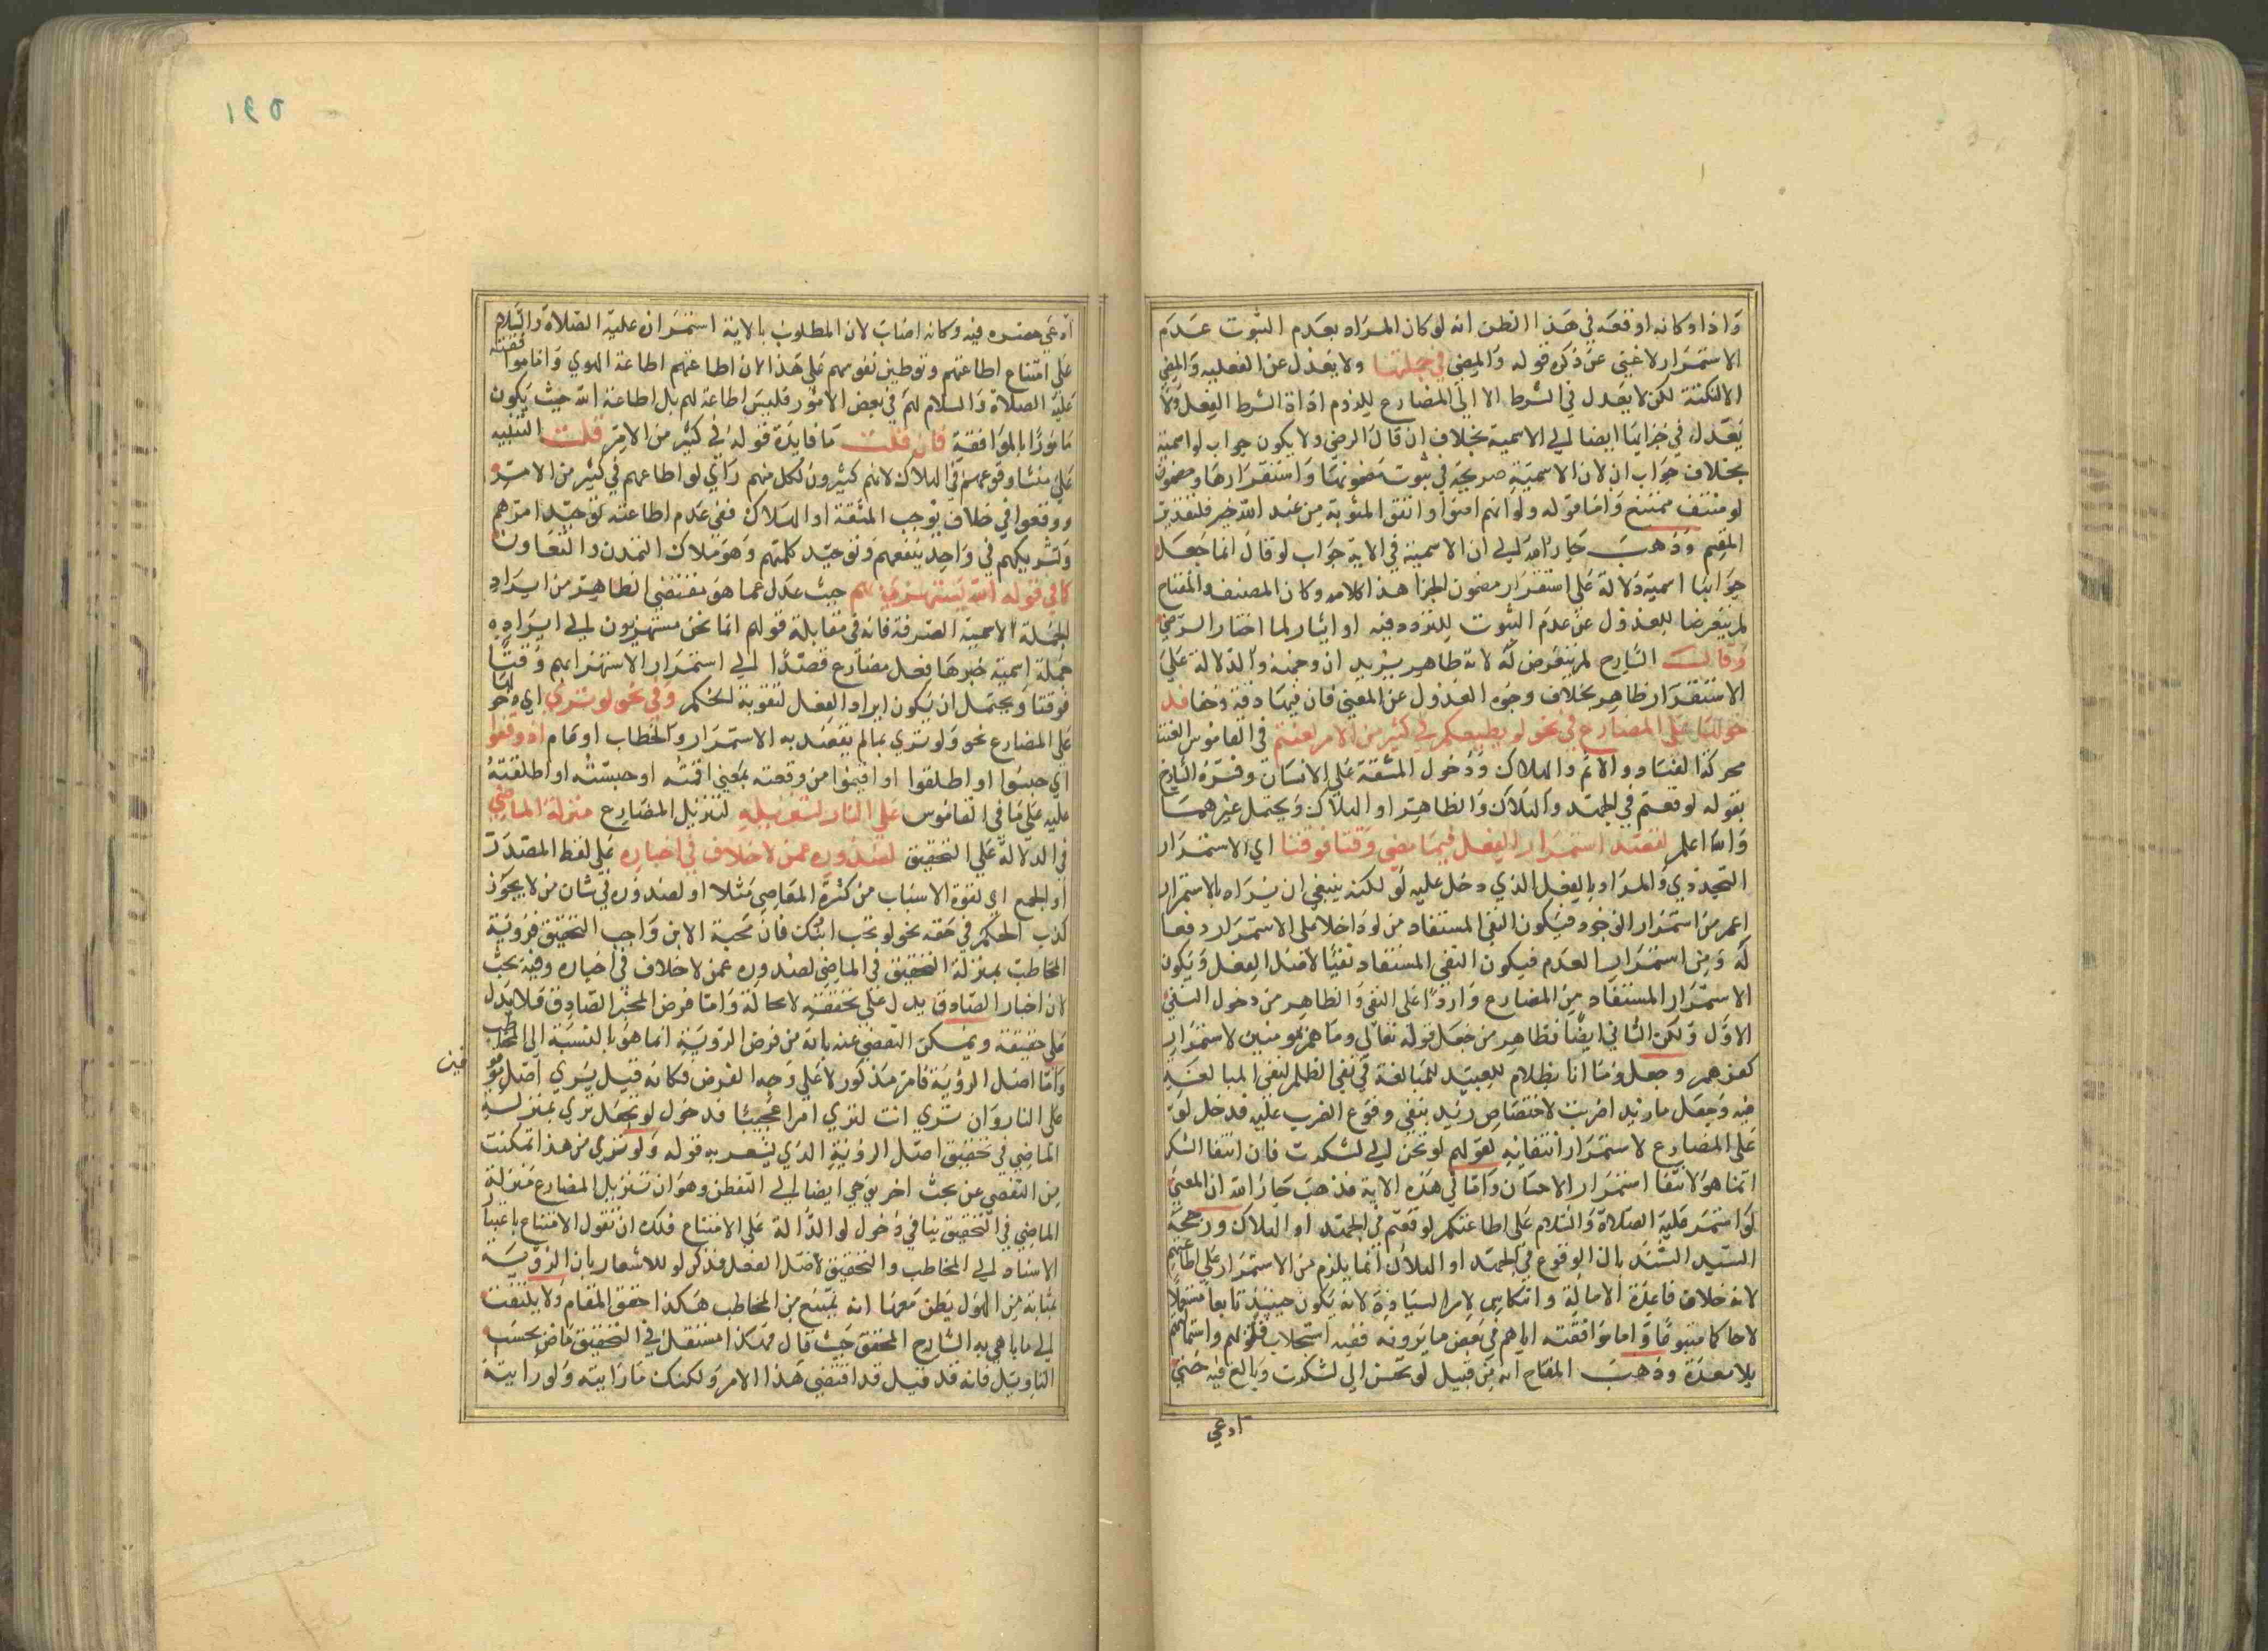 واذا وكانه اوقعه في هذا الظن انه لو كان المراد بعدم الثبوت عدم
الاستمرار لاغنى عن ذكره قوله والمضي في جملتها ولا يعدل عن الفعلية والمضي
الا لنكتة لكن لا يعدل في الشرط الا الى المضارع للزوم اداة الشرط الفعل ولا
يعدل في جزايها ايضا الى الاسمية بخلاف ان قال الرضي ولا يكون جواب لو اسمية
بخلاف جواب ان لان الاسمية صريحة في ثبوت مضمونها واستقرارها ومضمون
لو منتف ممتنع واما قوله ولو انهم امنوا واتقوا لمثوبة من عند الله خير فلتقدير
القسم وذهب جار الله الى ان الاسمية في الاية جواب لو قال انما جعل
جوابها اسمية دلالة على استقرار مضمون الجزا هذا كلامه وكان المصنف والمفتاح
لم يتعرضا للعدول عن عدم الثبوت للتردد فيه او ايثار لما اختار الرضي
وقال الشارح لم يتعرض له لانه ظاهر يريد ان وجهه والدلالة على
الاستقرار ظاهر بخلاف وجوه العدول عن المعنى فان فيها دقة وخفا فد
خولها على المضارع في نحو لو يطيعكم في كثير من الامر لعنتم في القاموس العنت
محركة الفساد والاثم والهلاك ودخول المشقة على الانسان وفسره الشارح
بقوله لوقعتم في الجهد والهلاك والظاهر او الهلاك ويحتمل غيرهما
والله اعلم لقصد استمرار الفعل فيما مضى وقتا فوقتا اي الاستمرار
التجددي والمراد بالفعل الذي دخل عليه لو لكنه ينبغي ان يراد بالاستمرار
اعم من استمرار الوجود فيكون النفي المستفاد من لو داخلا على الاستمرار دفعا
له ومن استمرار العدم فيكون النفي المستفاد نفيا لاصل الفعل ويكون
الاستمرار المستفاد من المضارع واردا على النفي والظاهر من دخول النفي
الاول ولكن الثاني ايضا نظاهر من جعل قوله تعالى وما هم بمومنين لاستمرار
كفرهم وجعل وما انا بظلام للعبيد للمبالغة في نفي الظلم لنفي المبالغة
فيه وجعل ما زيد اضربت لاختصاص زيد بنفي وقوع الضرب عليه فدخل لو
على المضارع لاستمرار انتفايه لقولهم لو تحسن الي لشكرت فان انتفا الشكر
انما هو لانتفا استمرار الاحسان واما في هذه الاية فذهب جار الله ان المعنى
لو استمر عليه الصلاة والسلام على اطاعتكم لوقعتم في الجهد او الهلاك ورجحه
السيد السند بان الوقوع في الجهد او الهلاك انما يلزم من الاستمرار على اطاعتهم
لانه خلاف قاعدة الامالة وانعكاس لامر السيادة لانه يكون حينيذ تابعا مستعملا
لا حاكما متبوعا واما موافقته اياهم في بعض ما يرونه ففيه استجلاب قلوبهم واستمالتهم
بلا معذرة وذهب المفتاح انه من قبيل لو تحسن الي لشكرت وبالغ فيه حتى
ادعى
ادعى حصره فيه وكانه اصاب لان المطلوب بالاية استمرانه عليه الصلاة والسلام
على امتناع اطاعتهم وتوطين نفوسهم على هذا لان اطاعتهم اطاعة الهوي واما موافقته
عليه الصلاة والسلام لهم في بعض الامور فليس اطاعة لهم بل اطاعة الله حيث يكون
مامورا بالموافقة فان قلت ما فايدة قوله في كثير من الامر قلت التنبيه
على منشا وقوعهم في الهلاك لانهم كثيرون لكل منهم راي لو اطاعهم في كثير من الامر
ووقعوا في خلاف يوجب المشقة او الهلاك ففي عدم اطاعته توحيد امرهم
وتشريكهم في واحد ينفعهم وتوحيد كلمتهم وهو ملاك التمدن والتعاون
كما في قوله الله يستهزي بهم حيث عدل عما هو مقتضى الظاهر من ايراد
الجملة الاسمية الصرفة فانه في مقابلة قولهم انما نحن مستهزيون الى ايراده
جملة اسمية خبرها فعل مضارع قصدا الى استمرار الاستهزا بهم وقتا
فوقتا ويحتمل ان يكون ايراد الفعل لتقوية الحكم وفي نحو لو ترى اي دخولها
على المضارع نحو ولو ترى بما لم يقصد به الاستمرار والخطاب او تمام اذ وقفوا
اي حبسوا او اطلقوا او اقيموا من وقعته بمعنى اقمته او حبسته او اطلقته
عليه على ما في القاموس على النار لتنزيله لتنزيل المضارع منزلة الماضي
في الدلالة على التحقيق لصدوره عمن لا خلاف في اخباره على لفظ المصدر
او الجمع اي لقوة الاسباب من كثرة المعاصي مثلا او لصدوره في شان من لا يجوز
كذب الحكم في حقه نحو لو تحب ابنك فان محبة الابن واجب التحقيق فرؤية
المخاطب بمنزلة التحقيق في الماضي لصدوره عمن لا خلاف في اخباره وفيه بحث
لان اخبار الصادق يدل على تحققه لا محالة واما فرض المخبر الصادق فلا يدل
على حقيقة ويمكن التفصي عنه بانه من فرض الروية انما هو بالنسبة الى المخاطب
واما اصل الرؤية فامر مذكور لا على وجه الفرض فكانه قيل يرى اصل
على النار وان ترى انت لترى امرا عجيبا فدخول لو بجعل ترى بمنزلة
الماضي في تحقيق اصل الرؤية الذي يشعر به قوله ولو ترى من هذا تمكنت
من التفصي عن بحث اخر يوجى ايضا الى التفطن وهو ان تنزيل المضارع منزلة
الماضي في التحقيق ينافي دخول لو الدالة على الامتناع فلك ان تقول الامتناع باعتبار
الاسناد الى المخاطب والتحقيق لاصل الفعل فذكر لو للاشعار بان الروية
بمثابة من الهول يظن معها انه يمتنع من المخاطب هكذا حقق المقام ولا يلتفت
الى ما باهى به الشارح المحقق حيث قال فهكذا مستقل في التحقيق ماض بحسب
التاويل فانه قد قيل قد اقتضى هذا الامر ولكنك ما رايته ولو رايته